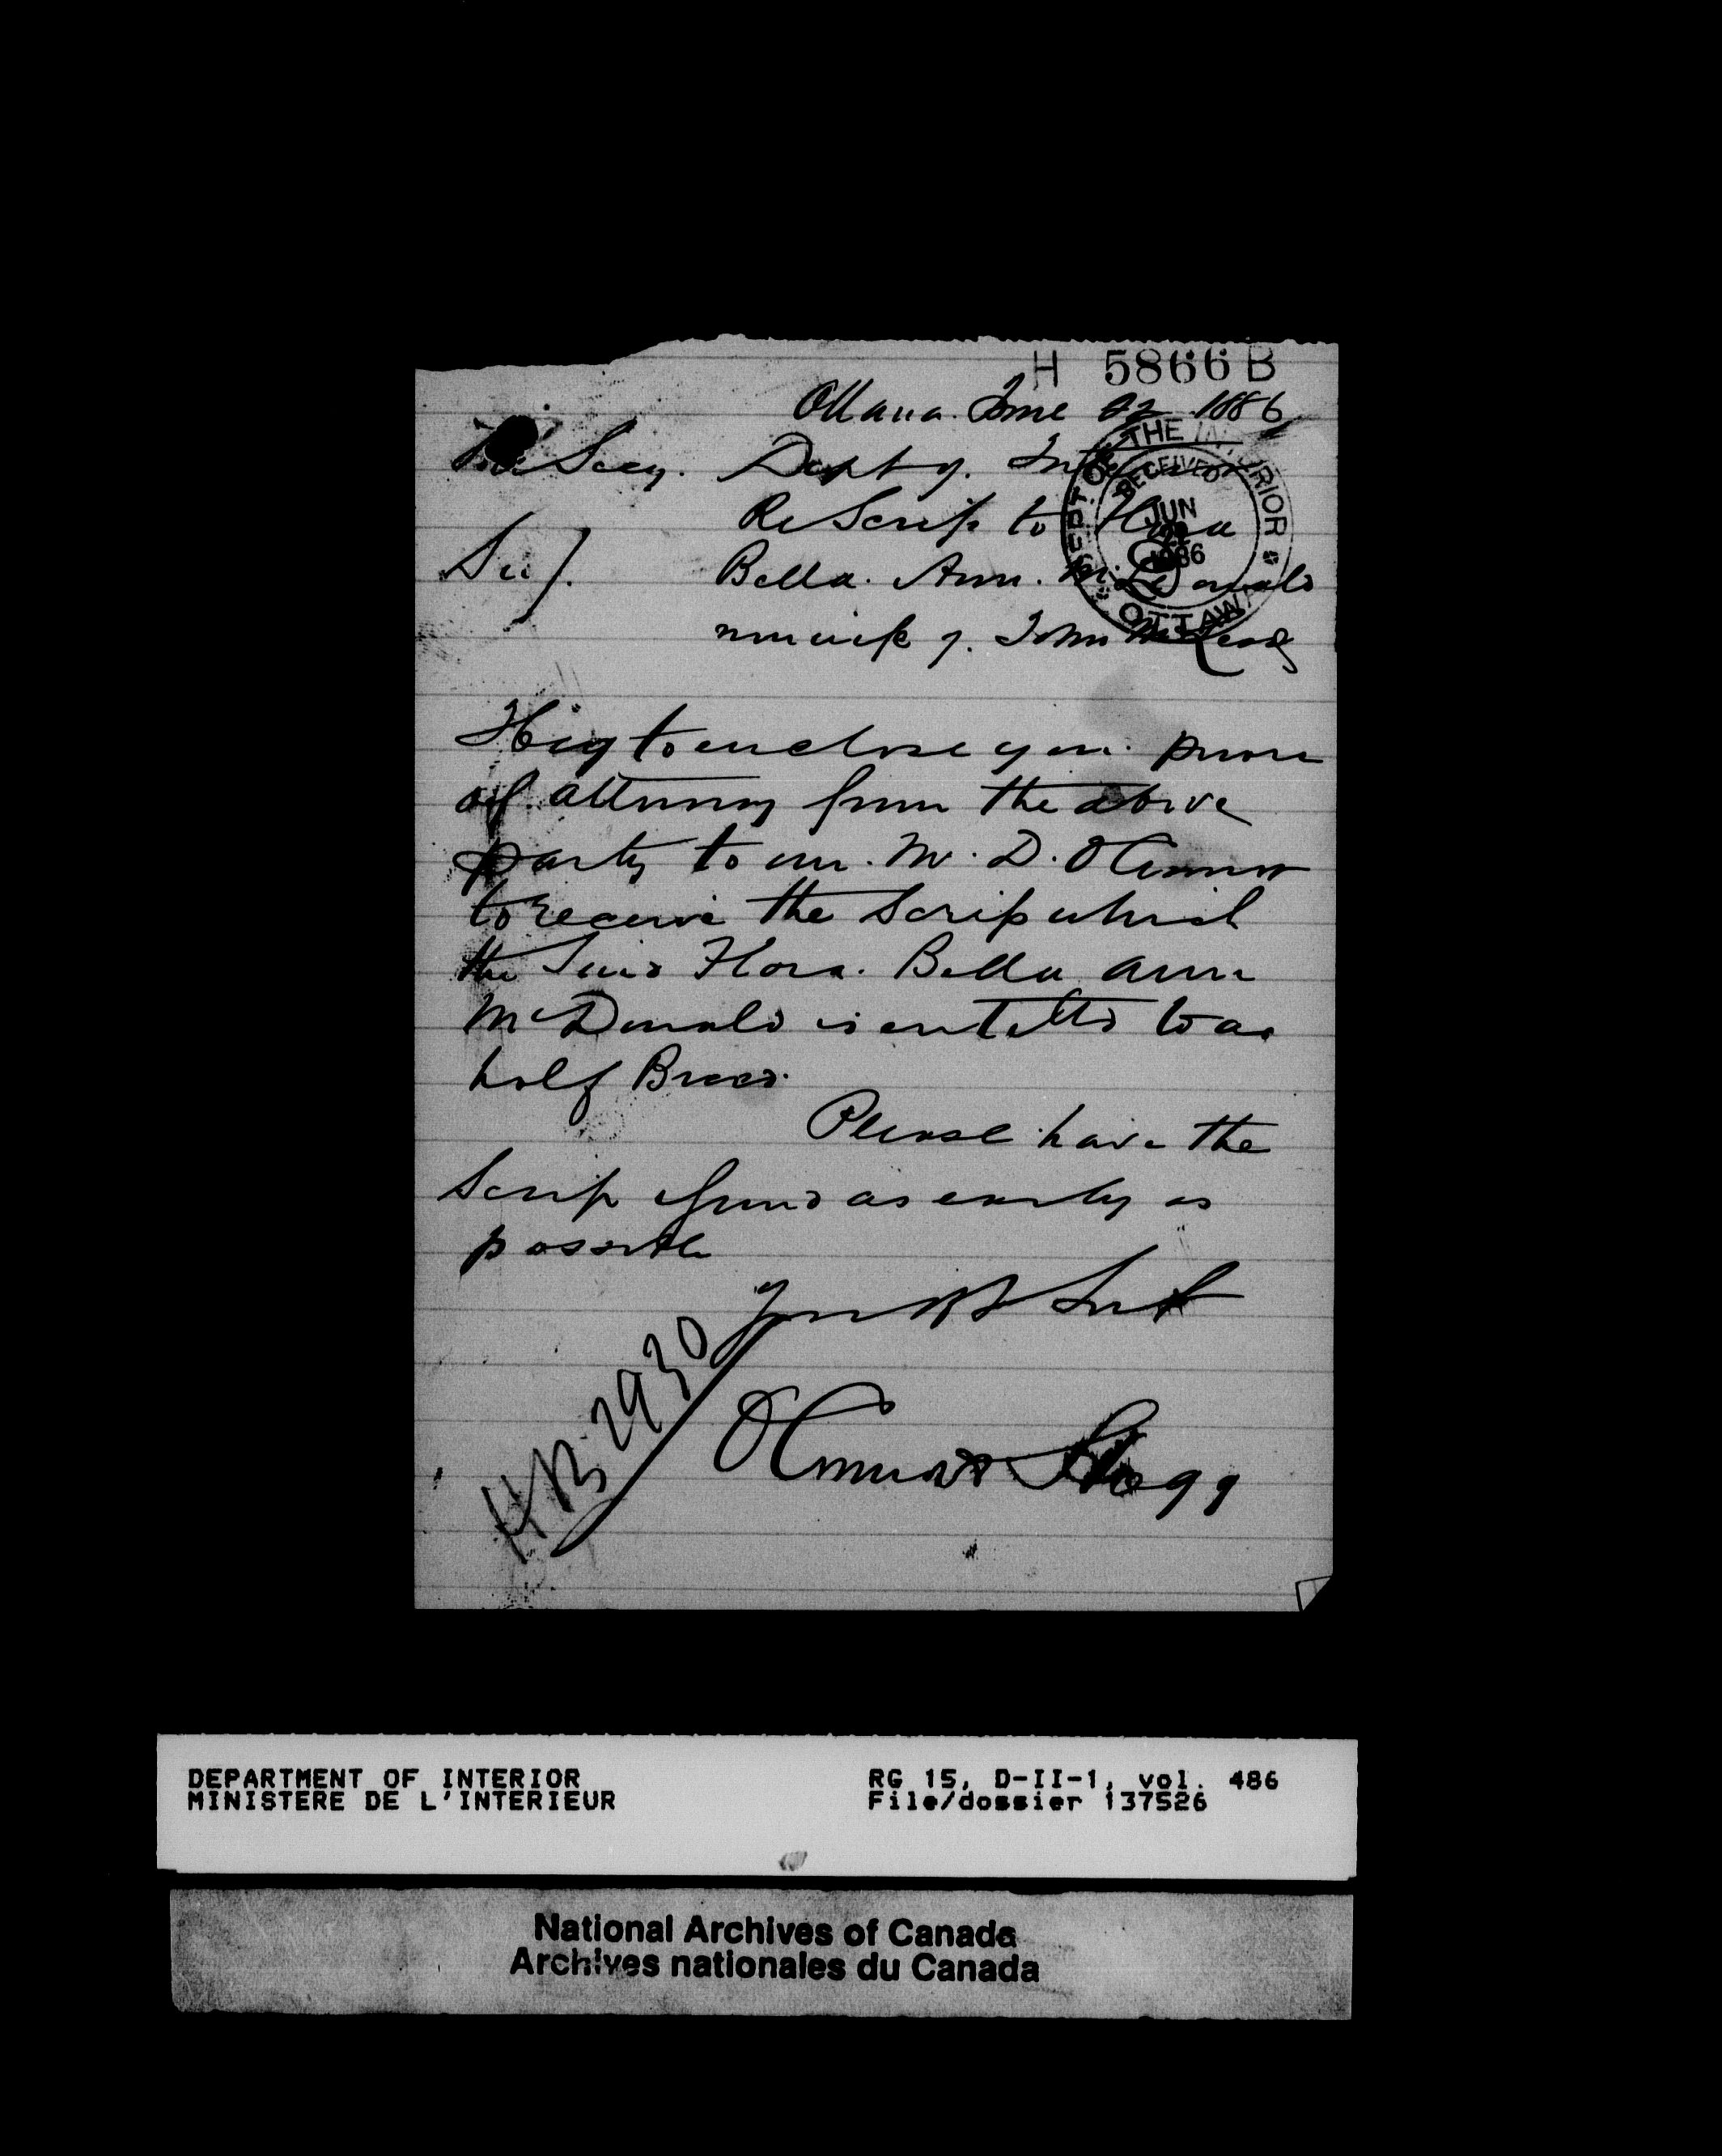 H 5866 B
Ottawa June 22 1886
The Secy. Dept of. Interior
Re Scrip to Flora
Sir). Bella. Ann. McDonald
now wife of. John McLeod
I beg to enclose you power
of attorney from the above
party to our Mr. D. O'Connor
to receive the Scrip which
the Said Flora. Bella Ann
McDonald is entitled to as
half Breed.
Please have the
Scrip issued as early as
possible
Your Obt Servt
O'Connor & Hogg
HB. 2930
DEPT. OF THE INTERIOR
RECEIVED
JUN
22
1886
OTTAWA
DEPARTMENT OF INTERIOR
MINISTERE DE L'INTERIEUR
RG 15, D-II-1, vol. 486
File/dossier 137526
National Archives of Canada
Archives nationales du Canada